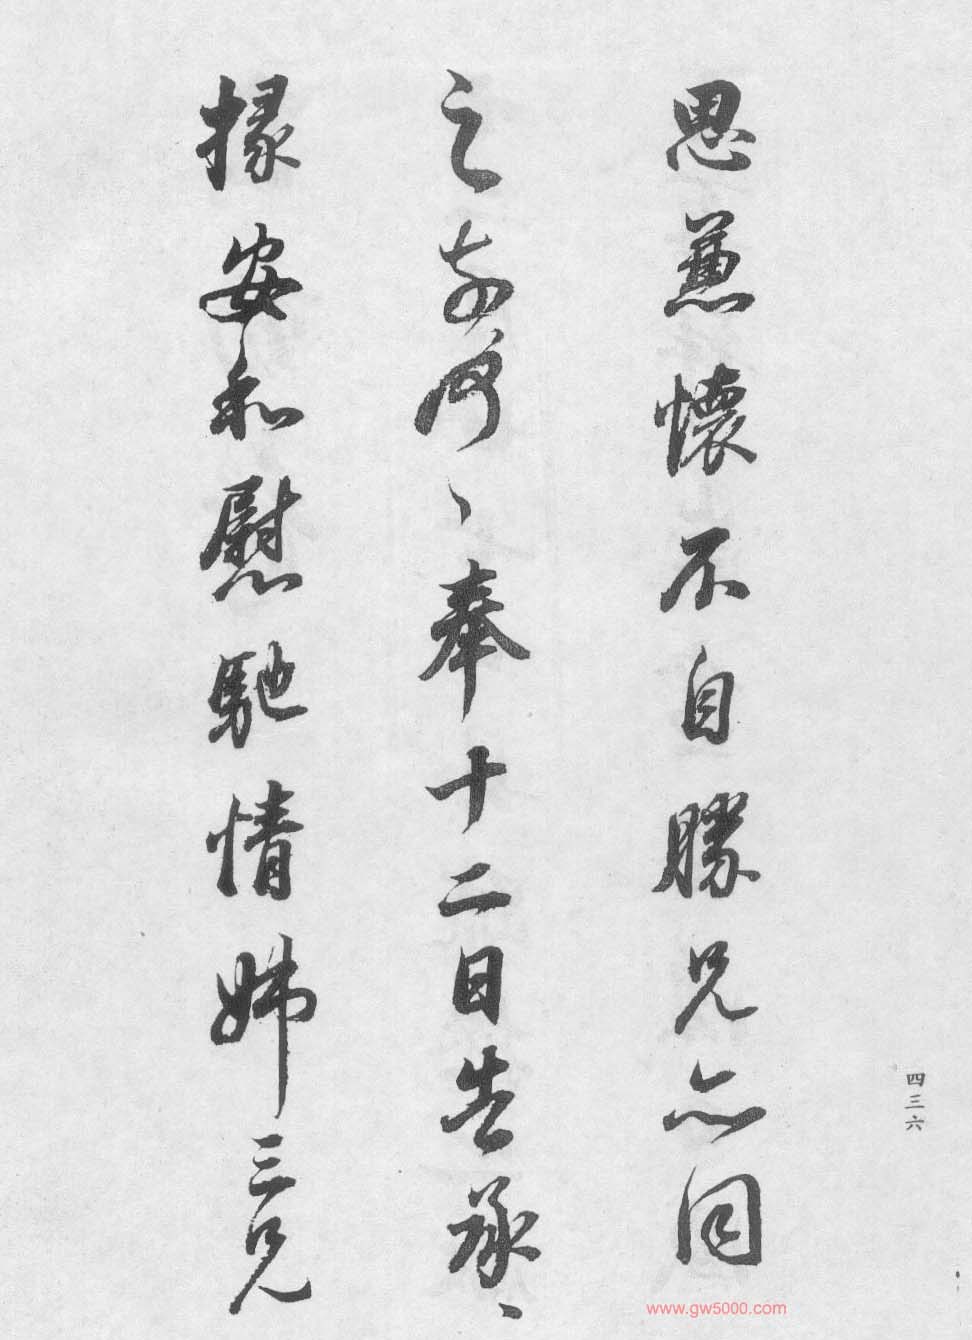 思兼懷不自勝兄亦同
之奈何〻奉十二日告承〻
掾安和慰馳情姊三兄
四三六
www.gw5000.com